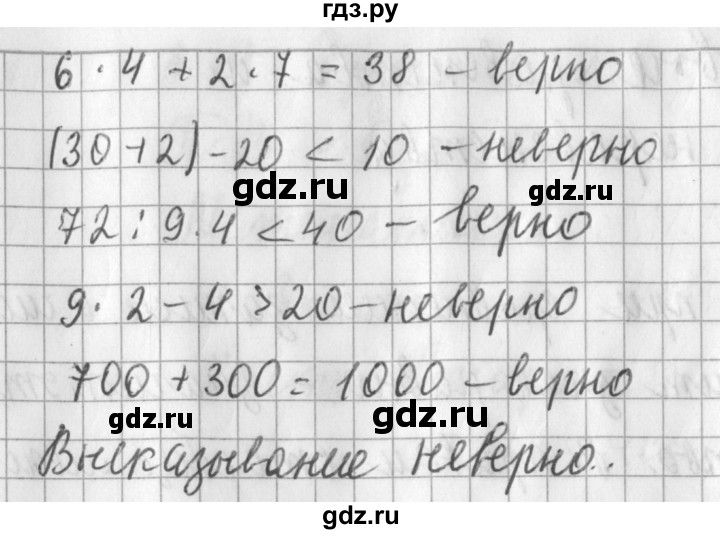 гдз.ру
6 · 4 + 2 · 7 = 38 - верно
(30 + 2) - 20 < 10 - неверно
gdz.ru gdz.ru
72 : 9 · 4 < 40 - верно
9 · 2 - 4 > 20 - неверно
700 + 300 = 1000 - верно
gdz.ru gdz.ru
Высказывание неверно.
gdz.ru